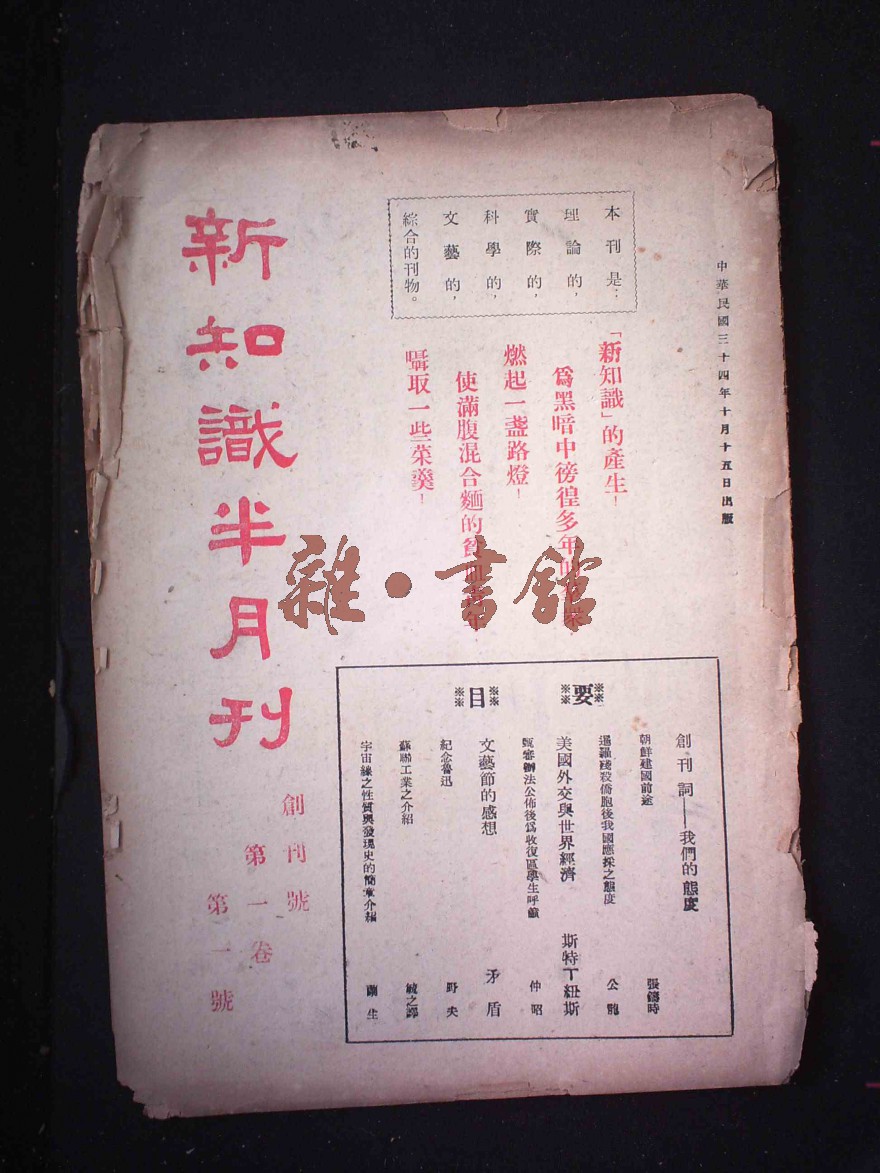 中華民國三十四年十月十五日出版
本刊是：
理論的，
實際的，
科學的，
文藝的，
綜合的刊物。
「新知識」的產生！
為黑暗中徬徨多年的
燃起一盞路燈！
使滿腹混合麵的貧血青年
囁取一些菜羹！
新知識半月刊
創刊號
第一卷
第一號
雜·書館
※※要※※
※※目※※
創刊詞——我們的態度
朝鮮建國前途 張鑄時
暹羅殘殺僑胞後我國應採之態度 公
美國外交與世界經濟 斯特丁紐斯
甄審辦法公佈後為收復區學生呼籲 仲昭
文藝節的感想 矛盾
紀念魯迅 野央
蘇聯工業之介紹 敏之譯
宇宙線之性質與發現史的簡章介紹 蘭生